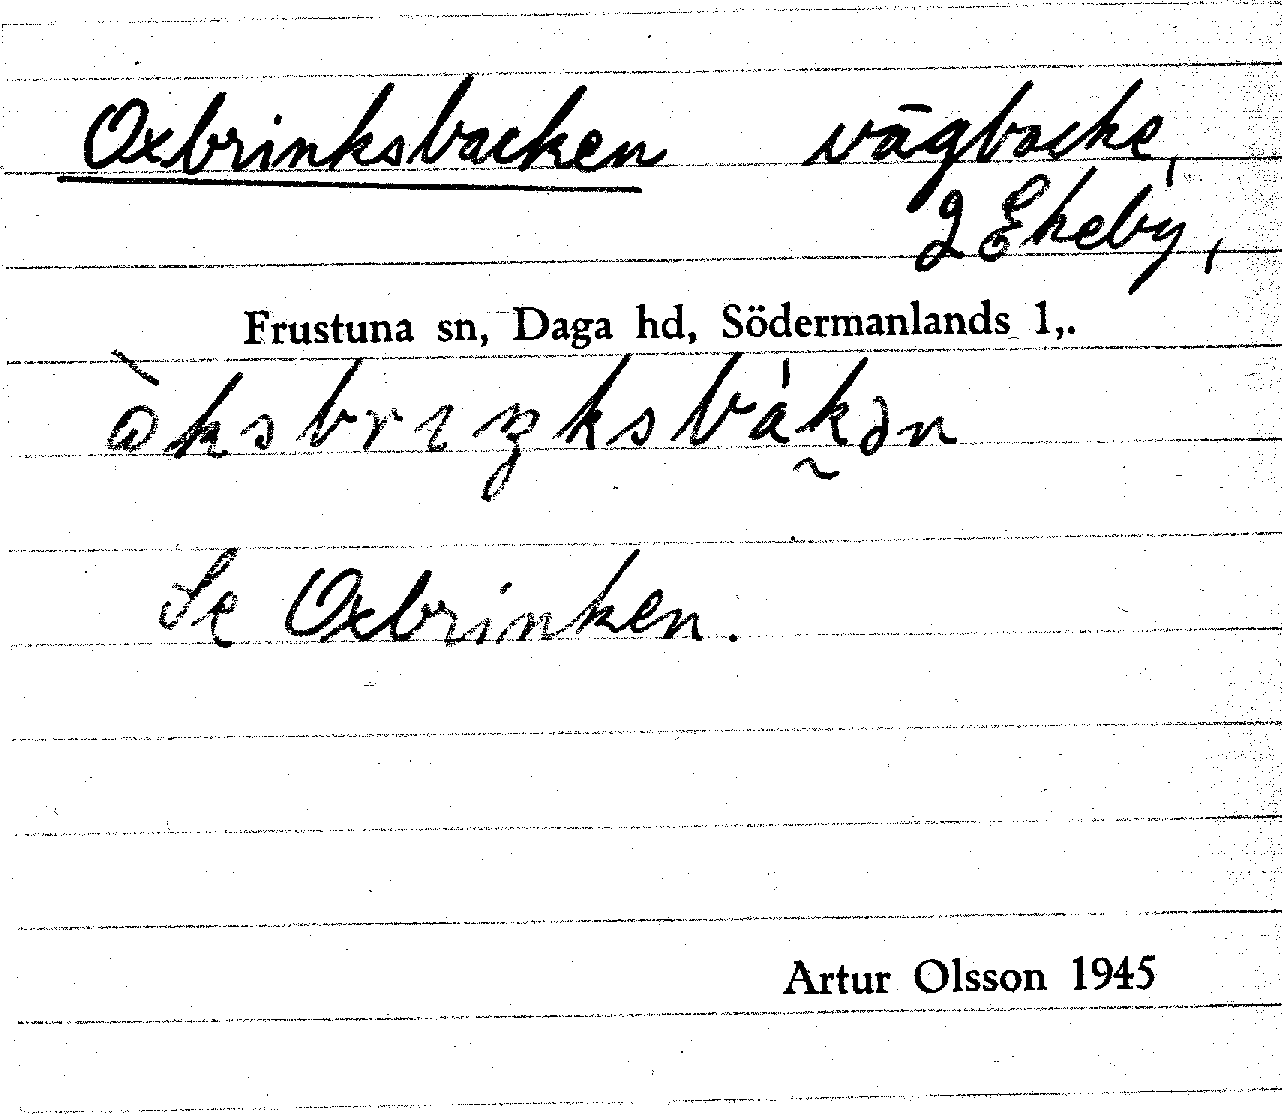 Oxbrinksbacken vägbacke,
2 Ekeby,
Frustuna sn, Daga hd, Södermanlands l,.
Se Oxbrinken.
Artur Olsson 1945